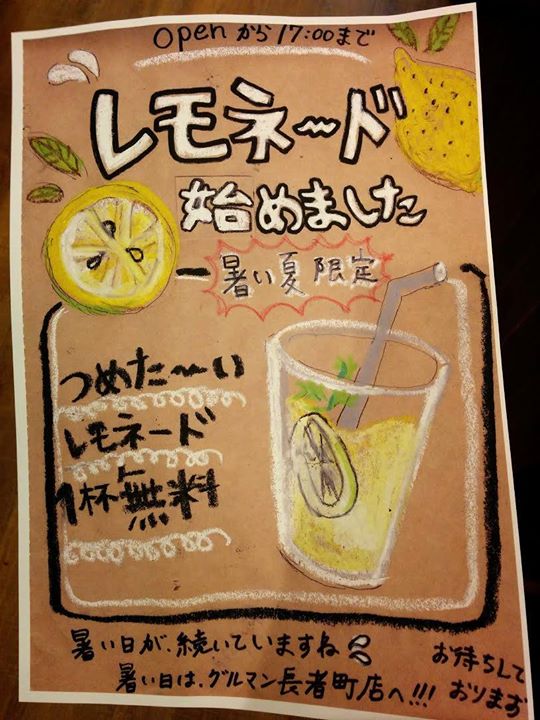 openから17:00まで
レモネ〜ド
始めました
暑い夏限定
つめた〜い
レモネード
1杯無料
暑い日が、続いていますね
暑い日は、グルマン長者町店へ!!!
お待ちして
おります